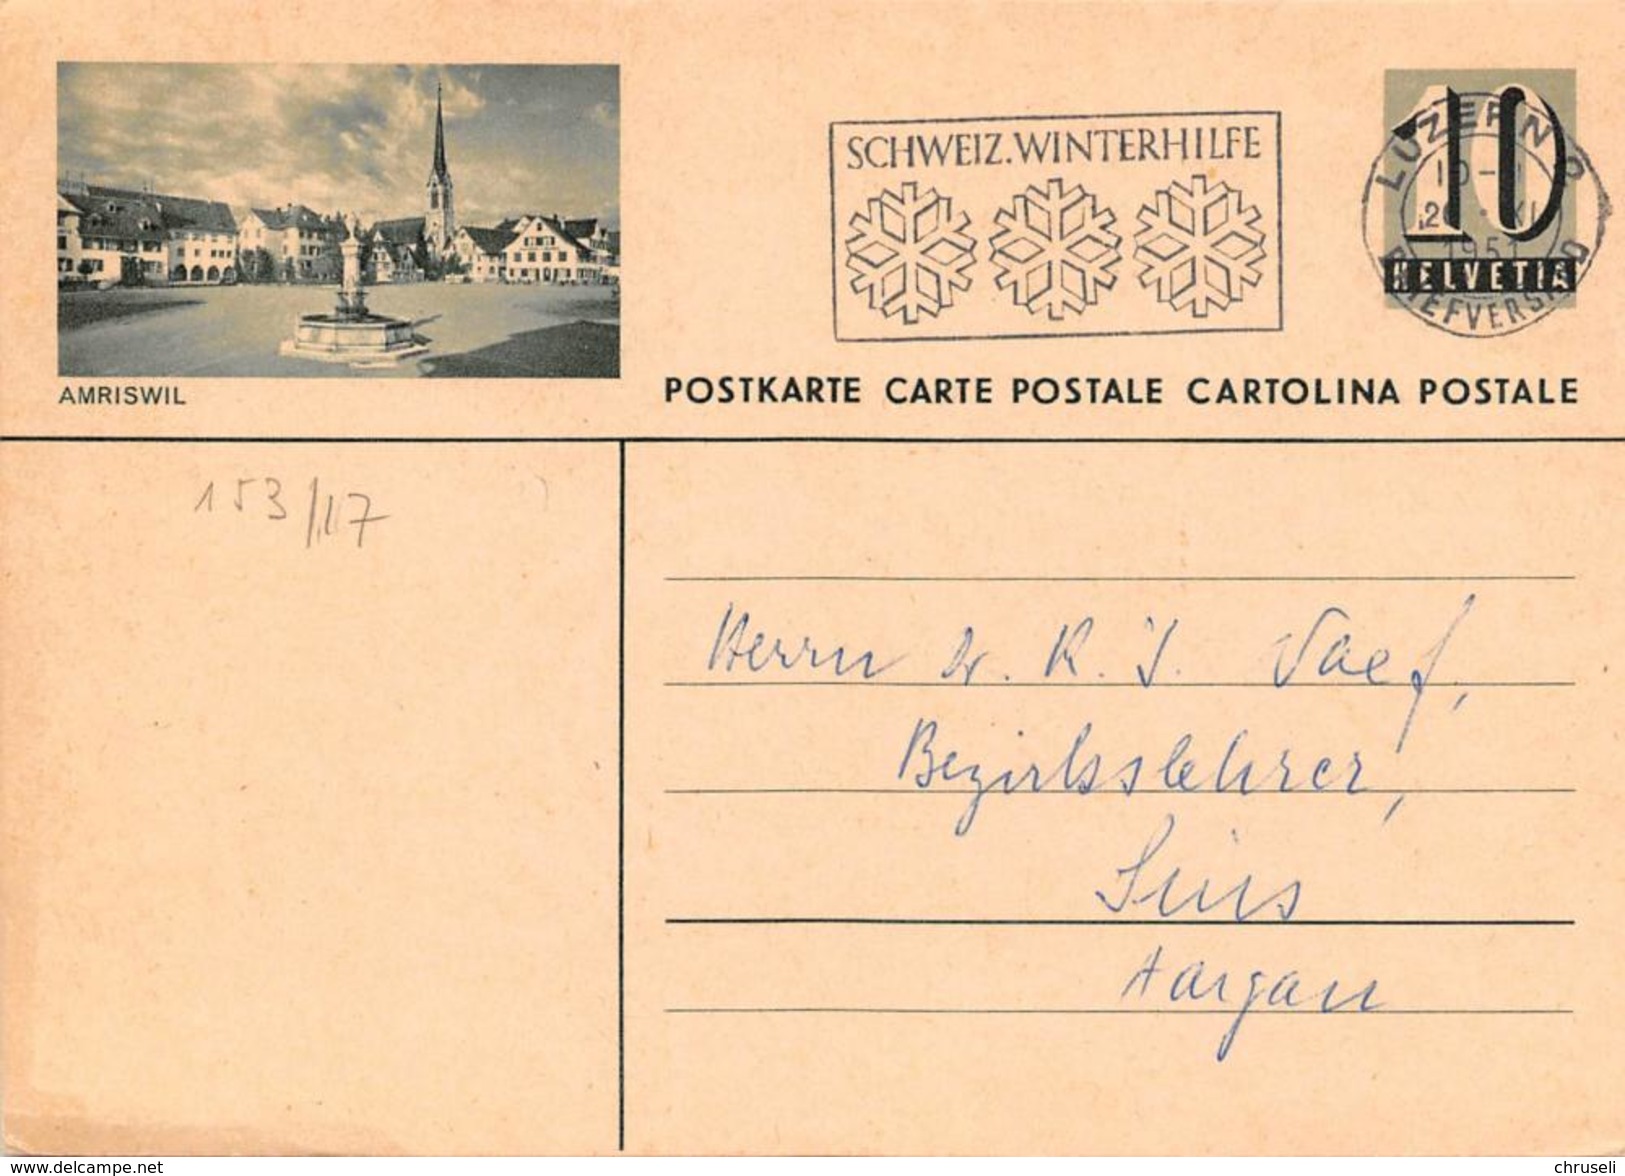 SCHWEIZ. WINTERHILFE
10
HELVETIA
LUZERN 2
1951
BRIEFVERSAND
AMRISWIL
POSTKARTE CARTE POSTALE CARTOLINA POSTALE
153/117
Herrn Dr. K. J. Vaef,
Bezirkslehrer,
Sins
Aargau
www.delcampe.net
chruseli